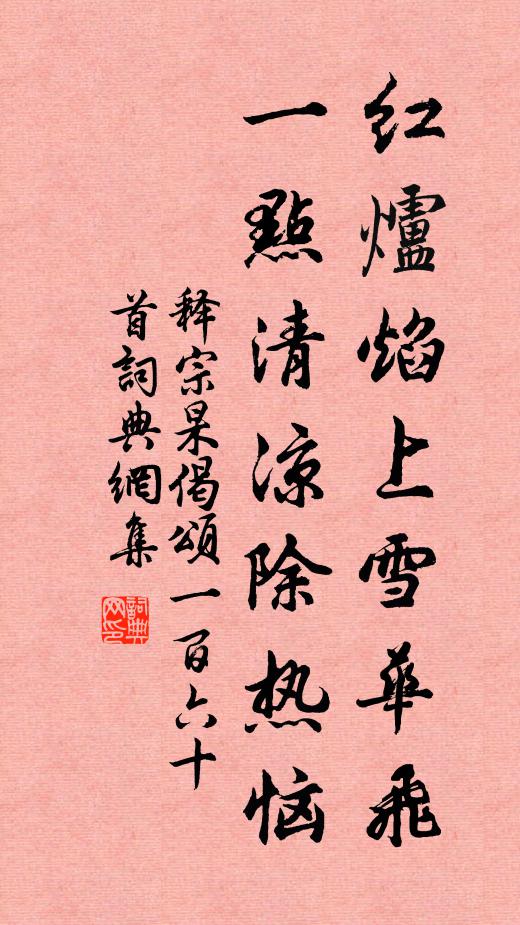 红爐焰上雪華飛
一點清涼除热恼
释宗杲偈頌一百六十
首詞典網集
詞典网印